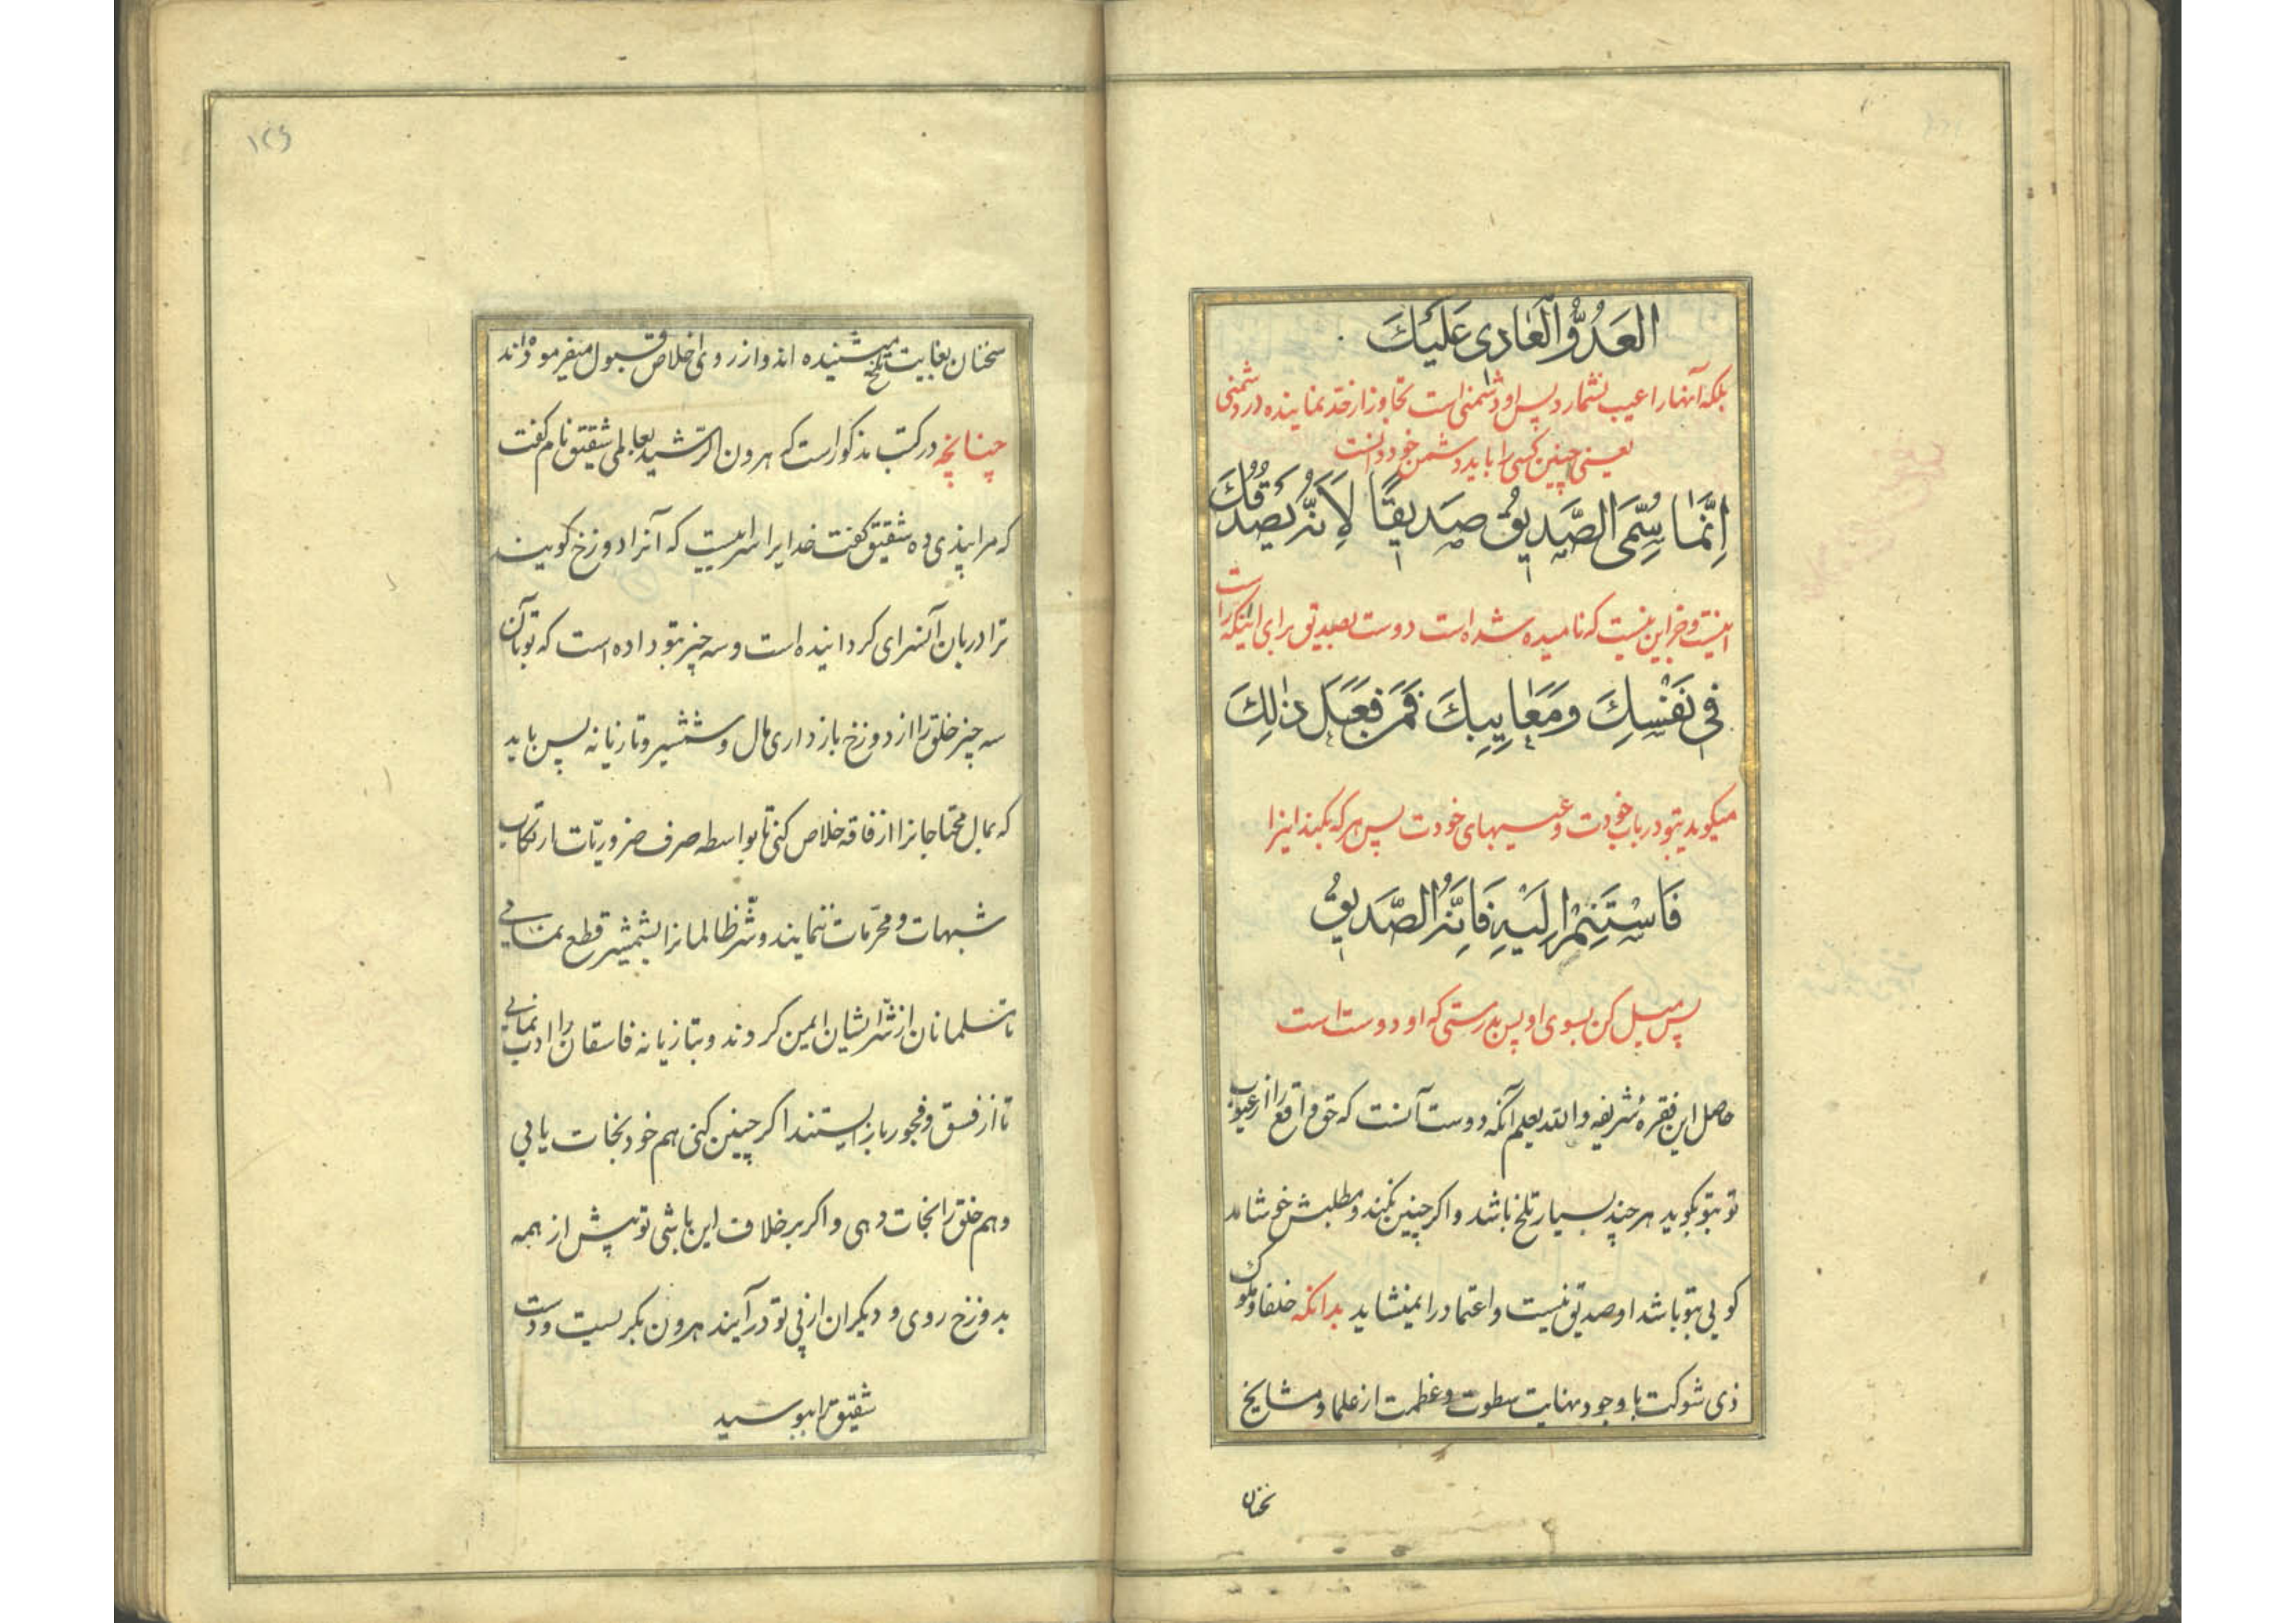 العَدُوُّ العَادِی عَلَیْكَ
بلکه آنها را عیب نشمارد پس او دشمنی است تجاوز از حد نماینده در دشمنی
یعنی چنین کسی را باید دشمن خود دانست
اِنَّمَا سُمِّیَ الصَّدِیقُ صَدِیقًا لِاَنَّهُ یَصْدُقُكَ
اینست و جز این نیست که نامیده شده است دوست بصدیق برای اینکه راست
فِی نَفْسِكَ وَمَعَایِبِكَ فَمَنْ فَعَلَ ذٰلِكَ
میکوید بتو در باب خودت و عیبهای خودت پس هر که بکند اینرا
فَاسْتَنِمْ اِلَیْهِ فَاِنَّهُ الصَّدِیقُ
پس میل کن بسوی او پس بدرستی که او دوست است
حاصل این فقرهٔ شریفه والله یعلم آنکه دوست آنست که حق و واقع را از عیوب
تو بتو بکوید هر چند بسیار تلخ باشد و اکر چنین نکند و مطلبش خوشامد
کویی بتو باشد او صدیق نیست و اعتماد را نمیشاید بدانکه خلفا و ملوک
ذی شوکت با وجود نهایت سطوت و عظمت از علما و مشایخ
سخنان
۱۲۶
سخنان بغایت تلخ میشنیده اند و از روی اخلاص قبول میفرموده اند
چنانچه در کتب مذکور است که هرون الرشید بعالمی شقیق نام کفت
که مرا پندی ده شقیق کفت خدایرا سراییست که آنرا دوزخ کویند
ترا دربان آنسرای کردانیده است و سه چیز بتو داده است که تو بآن
سه چیز خلق را از دوزخ باز داری مال و شمشیر و تازیانه پس باید
که بمال محتاجانرا از فاقه خلاص کنی تا بواسطه صرف ضروریات ارتکاب
شبهات و محرمات ننمایند و شر ظالمانرا بشمشیر قطع نمایی
تا مسلمانان از شر ایشان ایمن کردند و بتازیانه فاسقان را ادب نمایی
تا از فسق و فجور باز ایستند اکر چنین کنی هم خود نجات یابی
و هم خلق را نجات دهی و اکر بر خلاف این باشی تو پیش از همه
بدوزخ روی و دیکران از پی تو در آیند هرون بکریست و دست
شقیق را ببوسید